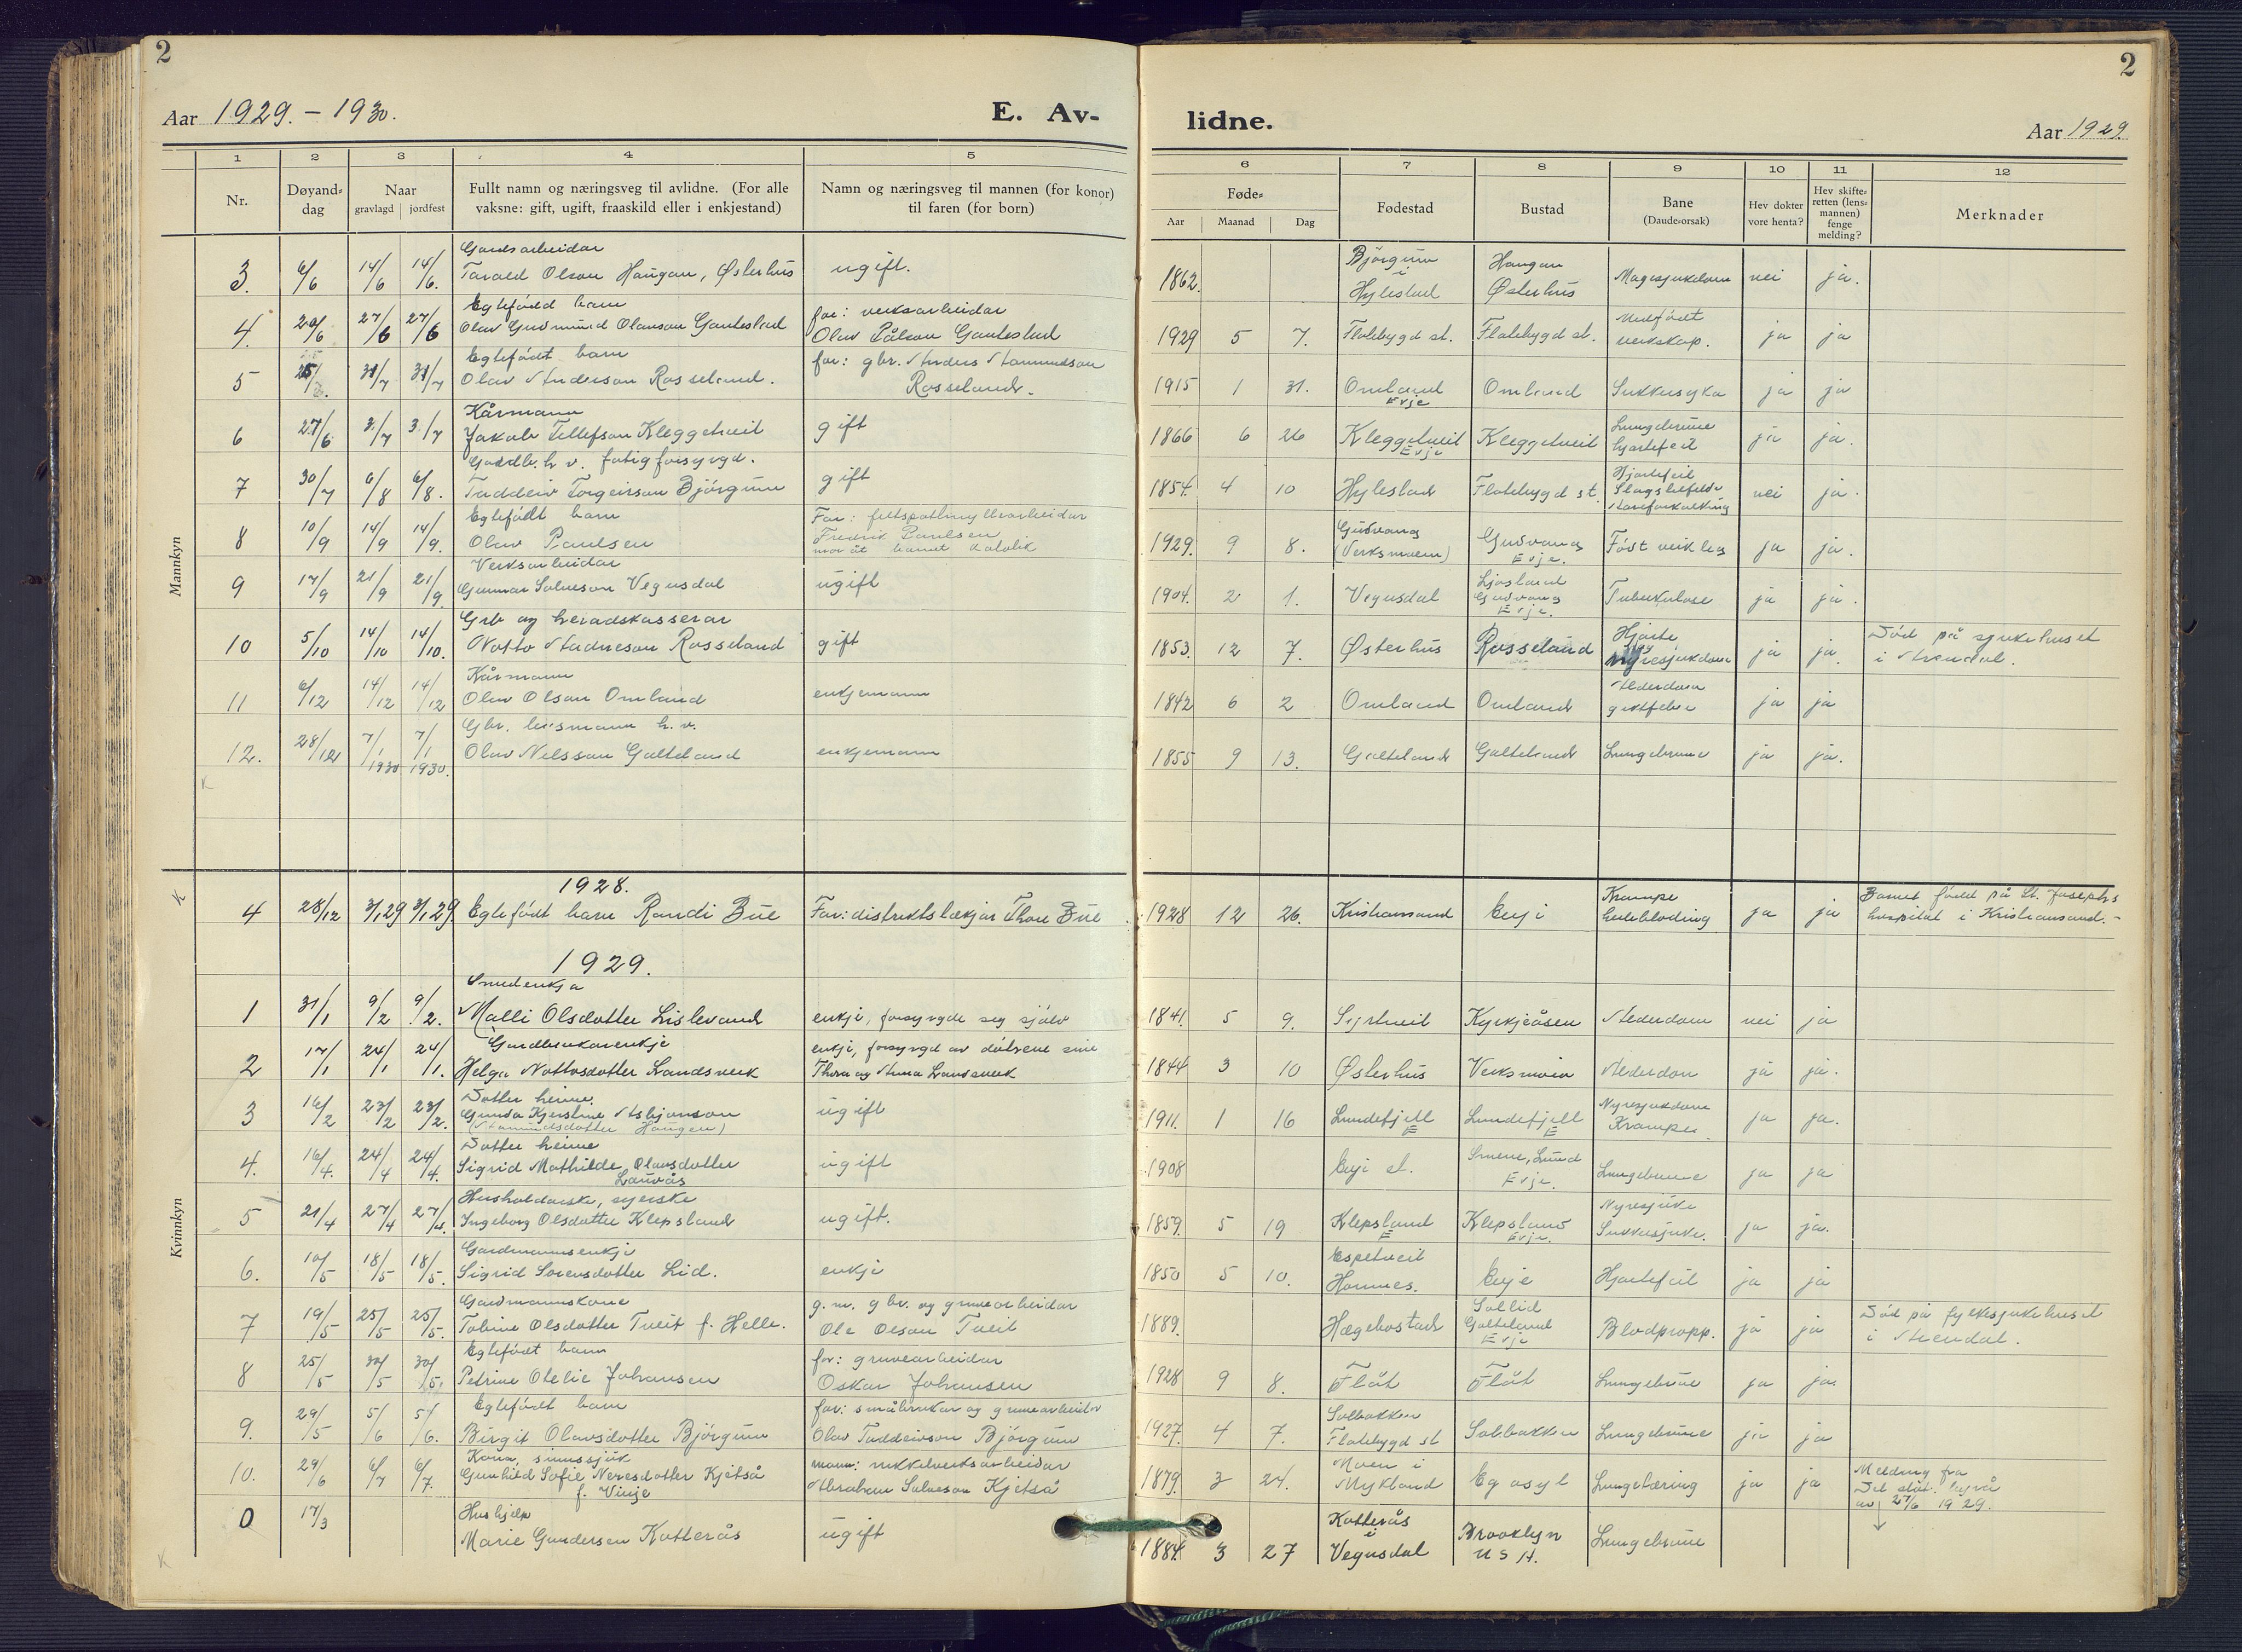 2
Aar 1929. - 1930.
E. Av-
1 2 3 4 5
Nr.
Døyand-
dag
Naar
gravlagd jordfest
Fullt namn og næringsveg til avlidne. (For alle
vaksne: gift, ugift, fraaskild eller i enkjestand)
Namn og næringsveg til mannen (for konor)
til faren (for born)
Mannkyn
Gardsarbeidar
3. 6/6 14/6 14/6. Tarald Olson Haugan, Østerhus ugift.
Egtefødd barn far: verksarbeidar
4. 20/6 27/6 27/6 Olav Gudmund Olavson Gauteslad Olav Pålson Gauteslad
Egtefødt barn far: gbr. Anders Aanundson
5 31/7 31/7 Olav Anderson Rosseland. Rosseland.
Kårmann
6 27/6 3/7 3/7 Jakob Tellefson Kleggetveit gift
Gardbr. h. v. fatigforsyrgd.
7 30/7 6/8 6/8. Taddeiv Torgeirson Björgum gift
Egtefødt barn Far: feltspatbrytarbeidar
8 10/9 14/9 14/9. Olav Paulsen Fredrik Paulsen
mor åt barnet katolik
Verksarbeidar
9 17/9 21/9 21/9. Gunnar Salveson Vegusdal ugift
Grb og heradskasserar
10 5/10 14/10 14/10. Notto Andreson Rosseland gift
Kårmann
11 6/12 14/12 14/12 Olav Olson Omland enkjemann
Gbr. h. v.
12. 28/12 7/1 1930 7/1 1930. Olav Nelsson Galteland enkjemann
K
K
1928.
4 28/12 3/1 29 3/1 29 Egtefødt barn Randi Bue Far: distriktslækjar Thor Bue
1929.
Kvinnkyn
Smedenkja
1 31/1 9/2 9/2. Malli Olsdotter Lislevand enkje, forsyrgde seg sjølv
Gardbrukarenkje enkje, forsyrgd av døtrene sine
2 17/1 24/1 24/1. Helga Nottosdotter Landsverk Thora og Anna Landsverk
Dotter heime.
3 16/2 23/2 23/2. Gunda Kjerstine Asbjonson ugift
(Aanundsdotter Haugen)
Dotter heime
4. 16/4. 24/4 24/4. Sigrid Mathilde Olavsdotter ugift
Lauvås
Husholdarske, syerske
5 21/4 27/4 27/4. Ingeborg Olsdotter Klepsland ugift.
Gardmannsenkje
6. 10/5 18/5 18/5. Sigrid Sorensdotter Lid. enkje
Gardmannskone g. m. gbr. og gruvearbeidar
7 19/5 25/5 25/5. Tobine Olsdotter Tveit f. Helle. Ole Olson Tveit
Egtefødt barn far: gruvearbeidar
8 25/5 30/5 30/5. Petrine Otelie Johansen Oskar Johansen
Egtefødt barn far: småbrukar og gruvearbeidar
9. 29/5 5/6 5/6. Birgit Olavsdotter Björgum Olav Taddeivson Björgum
Kona, sinnssjuk mann: nikkelverksarbeidar
10. 29/6 6/7 6/7. Gunhild Sofie Neresdotter Kjetså Abraham Salveson Kjetså
f. Vinje
Hushjelp
0 17/3 Marie Gundersen Katterås ugift
K
2
lidne.
Aar 1929.
6 7 8 9 10 11 12
Føde-
Aar Maanad Dag
Fødestad
Bustad
Bane
(Daude-orsak)
Hev dokter
vore henta?
Hev skifte-
retten (lens-
mannen)
fenge
melding?
Merknader
1862. Björgum i Hylestad Haugan Østerhus Magesjukdom nei ja.
1929 5 7. Flatebygd st. Flatebygd st. Medfødt veikskap. ja ja
1915 1 31. Omland Evje Omland Sukkersyka ja ja
1866 6 26 Kleggetveit Evje Kleggetveit Lungebrune hjartefeil ja ja.
1854. 4 10 Hylestad Flatebygd st. Hjartefeil nei ja.
1929. 9 8. Gudvang (Verksmoen) Gudvang Evje. Født veikleg ja ja.
1904. 2 1. Vegusdal Ljosland Gudvang Evje. Tuberkulose ja ja.
1853. 12 7. Østerhus Rosseland Hjarte og nyresjukdom ja ja. Død på sjukehuset
i Arendal.
1842 6 2 Omland Omland Alderdom ja ja
1855 9 13. Galteland Galteland Lungebrune ja ja.
1928 12 26. Kristiansand Evje Krampe ja ja Barnet fødd på St. Josephs
hospital i Kristiansand.-
1841. 5 9. Syrtveit Kyrkjeåsen Alderdom nei ja
1844 3 10 Østerhus Verksmoen Alderdom ja ja.
1911. 1 16 Lundefjell E Lundefjell E Nyresjukdom Krampe. ja ja.
1908 Evje st. Lund Evje. Lungebrune ja ja
1859. 5 19 Klepsland E Klepsland Evje. Nyresjuke Sukkersjuke. ja ja.
1850 5 10. Espetveit Hornnes. Evje Hjartefeil ja ja
1889. Hægebostad Sollid Galteland Evje Blodpropp. ja ja Død på fylkessjukehuset
i Arendal.
1928 9 8. Flåt Flåt Lungebrune ja ja.
1927. 4 7. Solbakken Flatebygd st Solbakken Lungebrune ja ja
1879. 3 24. Moen i Mykland Eg asyl Lungetæring ja ja Melding fra
Det stat. byrå
av 27/6 1929.
1884. 3 27 Katterås i Vegusdal Brooklyn U S A. Lungebrune